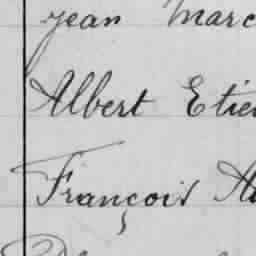 Jean Marc
Albert Etie
François A